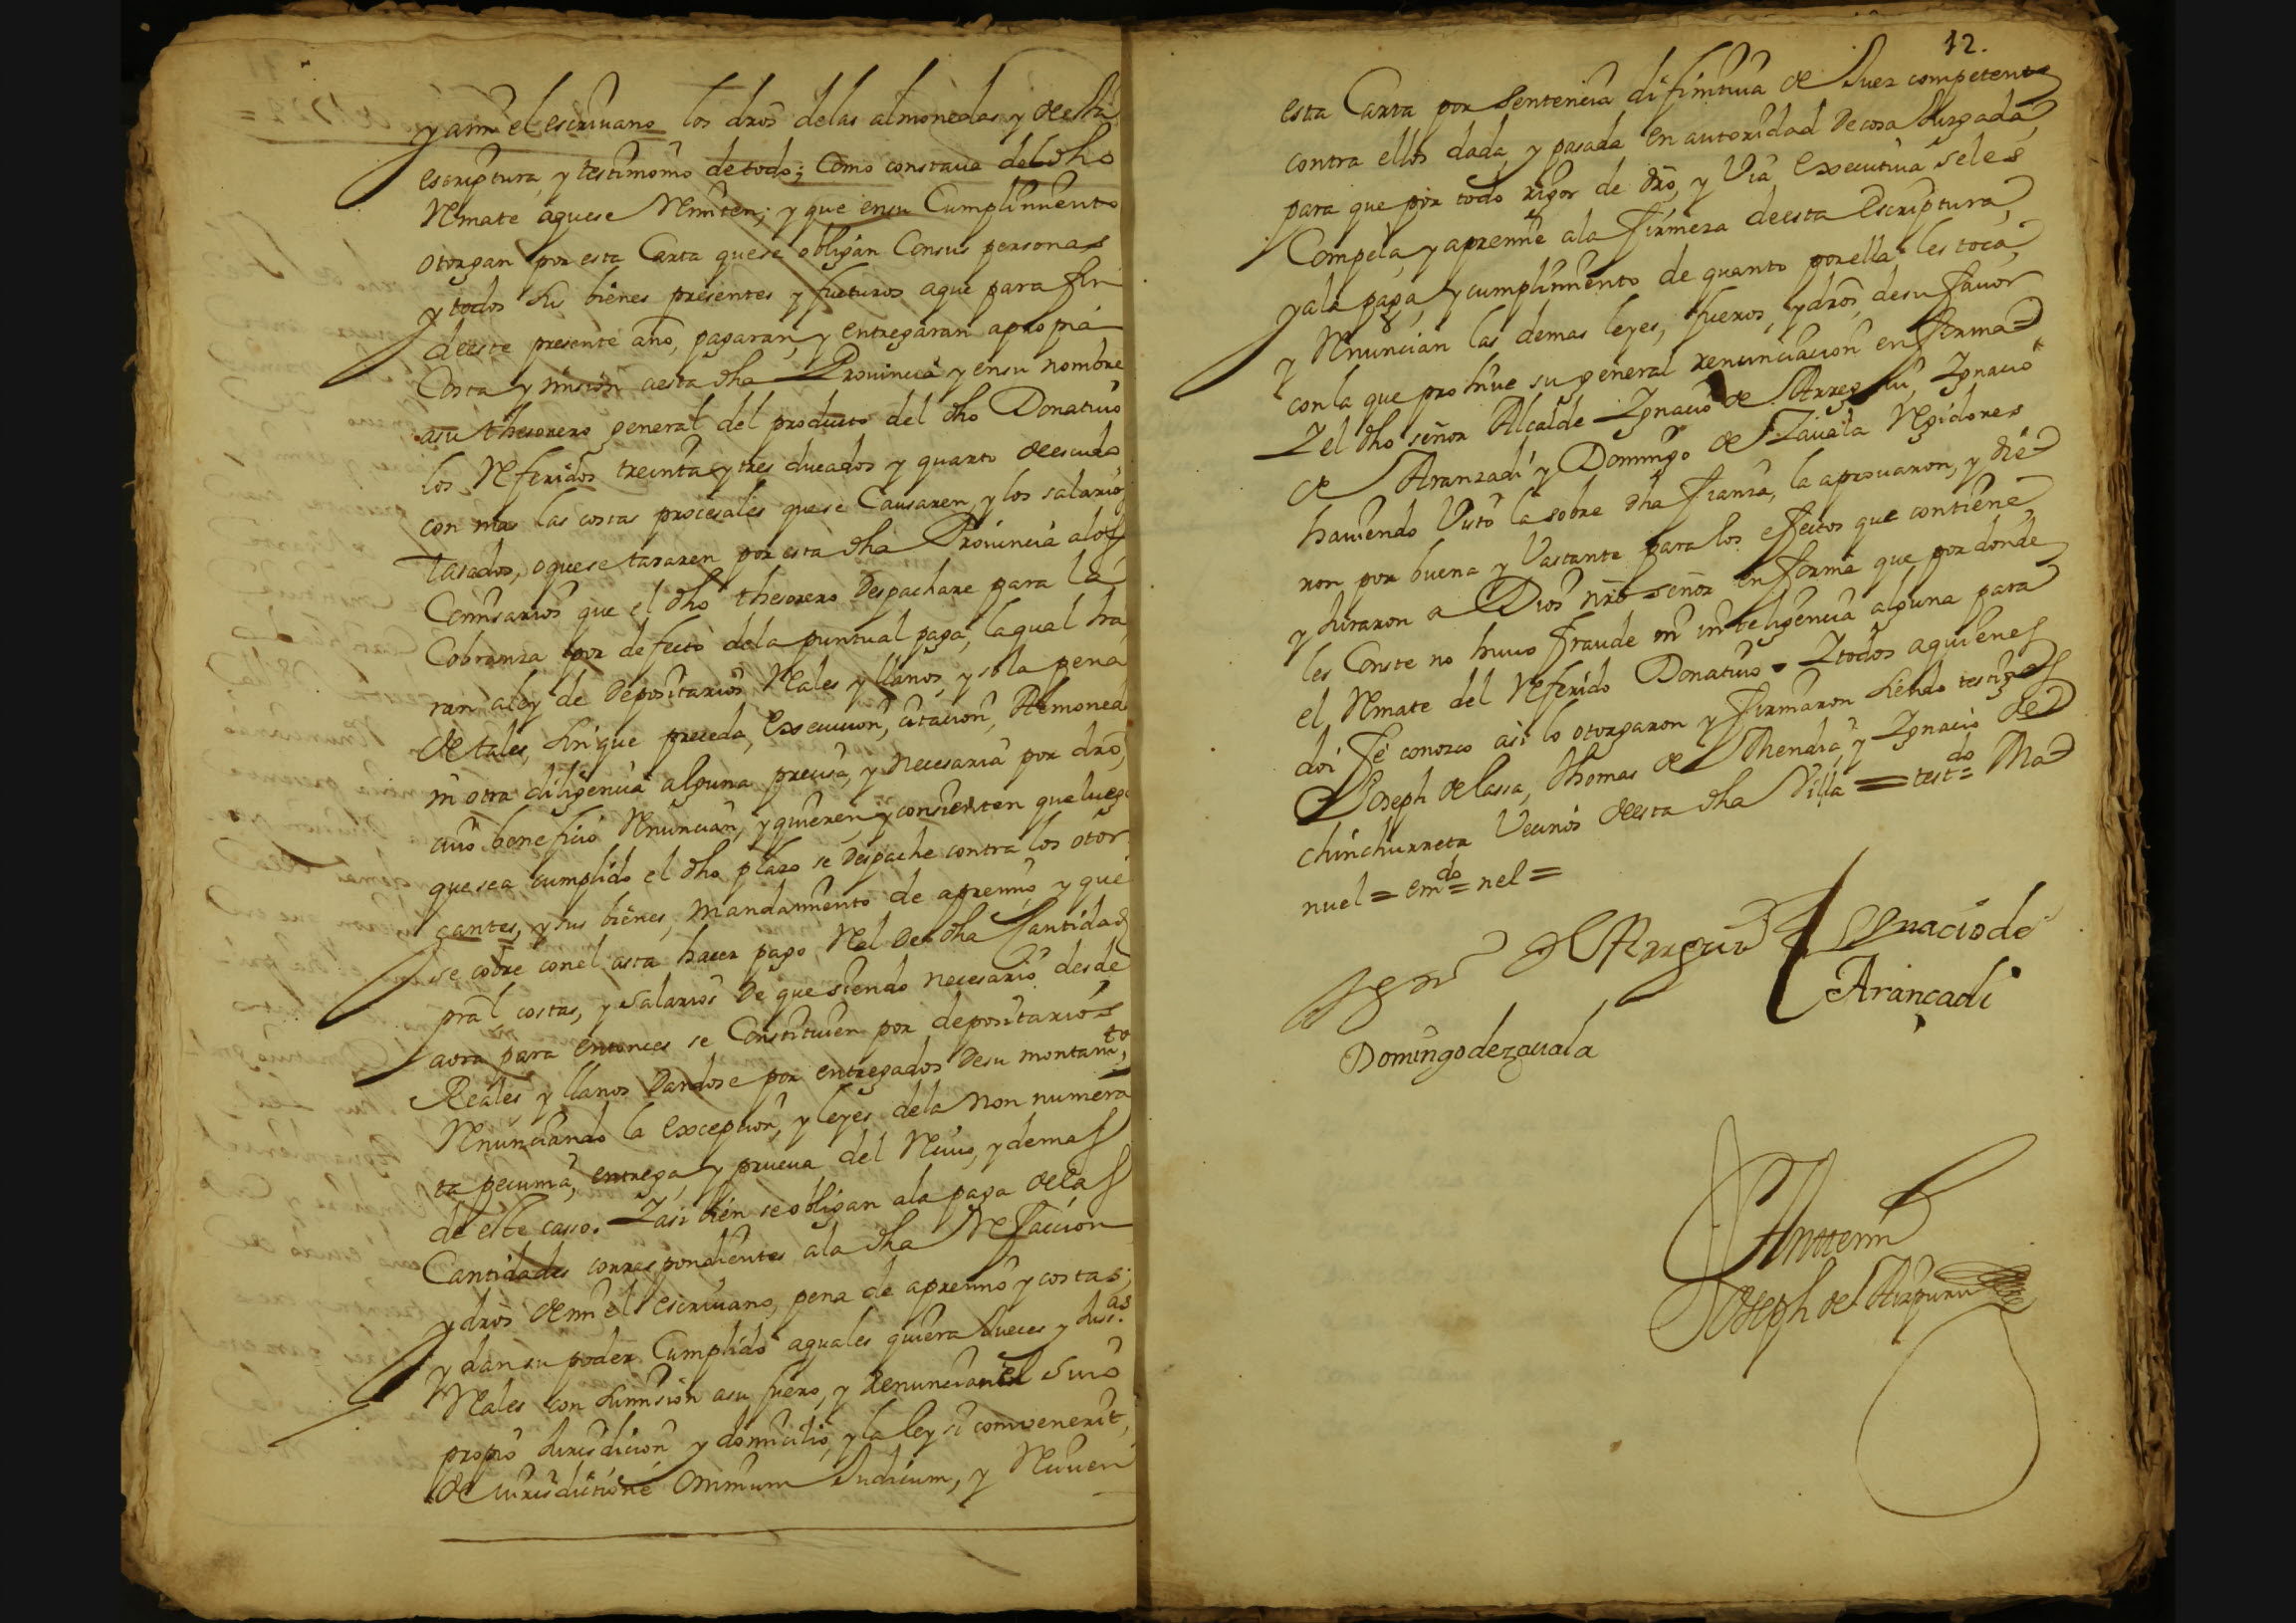 y ami el escriuano los dros delas almonedas y desta
escriptura, y testimonio de todo; Como constaua del dho
Remate aquese Remiten; y que ensu Cumplimiento
otorgan por esta Carta quese obligan Consus personas
y todos sus bienes presentes y futuros aque para fin
deeste presente año, pagaran, y entregaran apropia
Costa y mision aesta dha Prouincia y ensu nombre
asu thesorero general del producto del dho Donatiuo
los Referidos treinta y tres ducados y quarto deescudo
con mas las costas procesales quese Causaren, y los salarios
tasados, oquese tasaren por esta dha Prouincia alos
Comisarios que el dho thesorero Despachare para la
Cobranza por defecto dela puntual paga, laqual ha
ran aley de Depositarios Reales y llanos, y sola pena
de tales, sinque preceda, Execucion, citacion, Almoneda
ni otra diligencia alguna precisa, y necesaria por dro,
cuio beneficio Renuncian, y quieren, y consienten que luego
que sea cumplido el dho plazo se Despache contra los otor
gantes, y sus bienes, mandamiento de apremio, y que
se cobre conel asta hacer pago Real De dha Cantidad
pral costas, y salarios De que siendo necesario desde
aora para entonces se Constituien por depositarios
Reales y llanos Dandose por entregados Desu montamto,
Renunciando la excepcion, y leyes dela non numera
ta pecunia, entrega, y prueua del Reciuo, y demas
de este casso. Y asi bien se obligan ala paga delas
Cantidades correspondientes ala dha Refaccion
y dros demi el escriuano, pena de apremio y costas;
y dan su poder Cumplido aquales quiera Jueces y Jusas.
Reales con sumision asu fuero, y Renunciaron el Suio
propio Jurisdicion y domicilio, y la ley si convenerit,
de iurisdictione Omnium Judicum, y Reciuen
12.
esta Carta por Sentencia difinitiua de Juez competente
contra ellos dada y pasada en autoridad De cosa Juzgada
para que por todo rigor de dro, y Via Executiua seles
Compela, y apremie ala firmeza deesta escriptura,
y ala paga, y cumplimiento de quanto por ella les toca,
y Renuncian las demas leyes, fueros, y dros, desu fauor
conla que prohiue su general renunciacion en forma
Y el dho señor Alcalde Ygnacio de Arregui, Ygnacio
de Aranzadi y Domingo de Zauala Regidores
hauiendo Visto la sobre dha fianza, la aprouaron, y die
ron por buena y Vastante para los efectos que contiene
y Juraron a Dios nro señor en forma que por donde
les Conste no huuo fraude ni inteligencia alguna para
el Remate del Referido Donatiuo. Y todos aquienes
doi fé conozco asi lo otorgaron y firmaron siendo testigos
Joseph de lassa, Thomas de Rhendia, y Ygnacio de
chinchurreta Vecinos deesta dha Villa = testdo = Ma
nuel = emdo = nel =
Ygn° de Arregui Ygnacio de
Arançadi
Domingo de zauala
Antemi
Joseph de Aizpuru